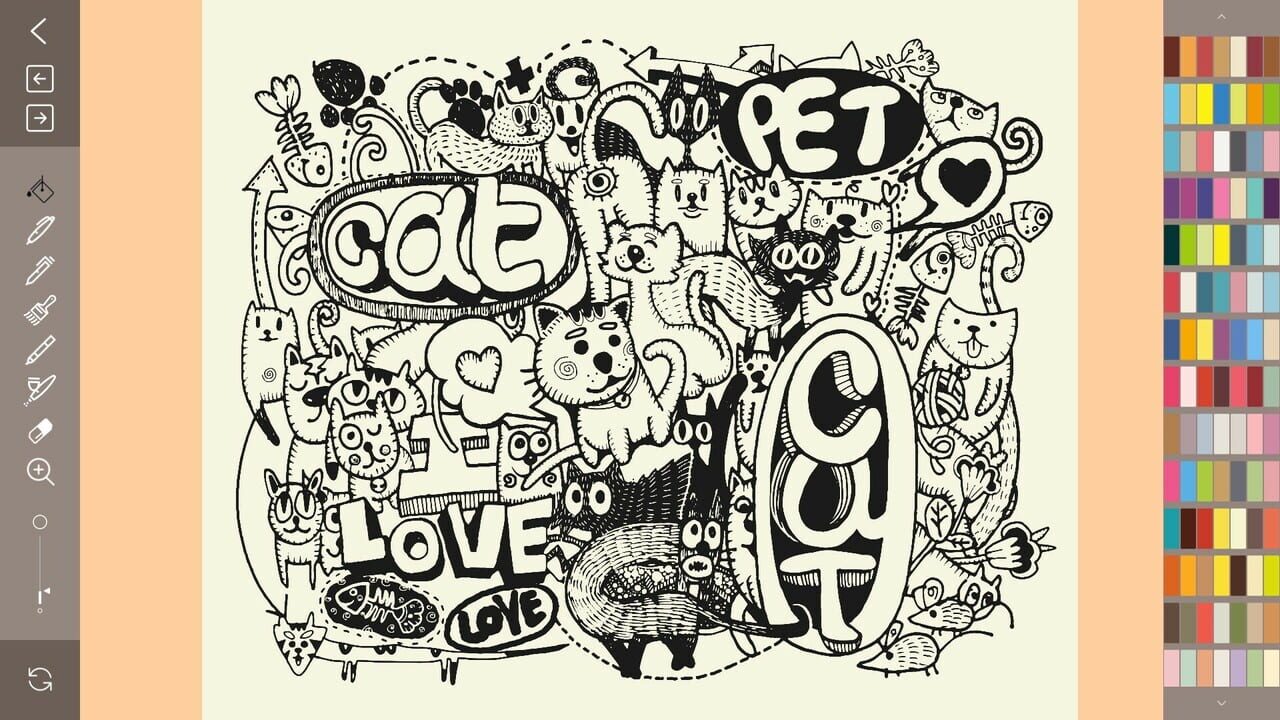 PET
cat
I
LOVE
LOVE
CaT